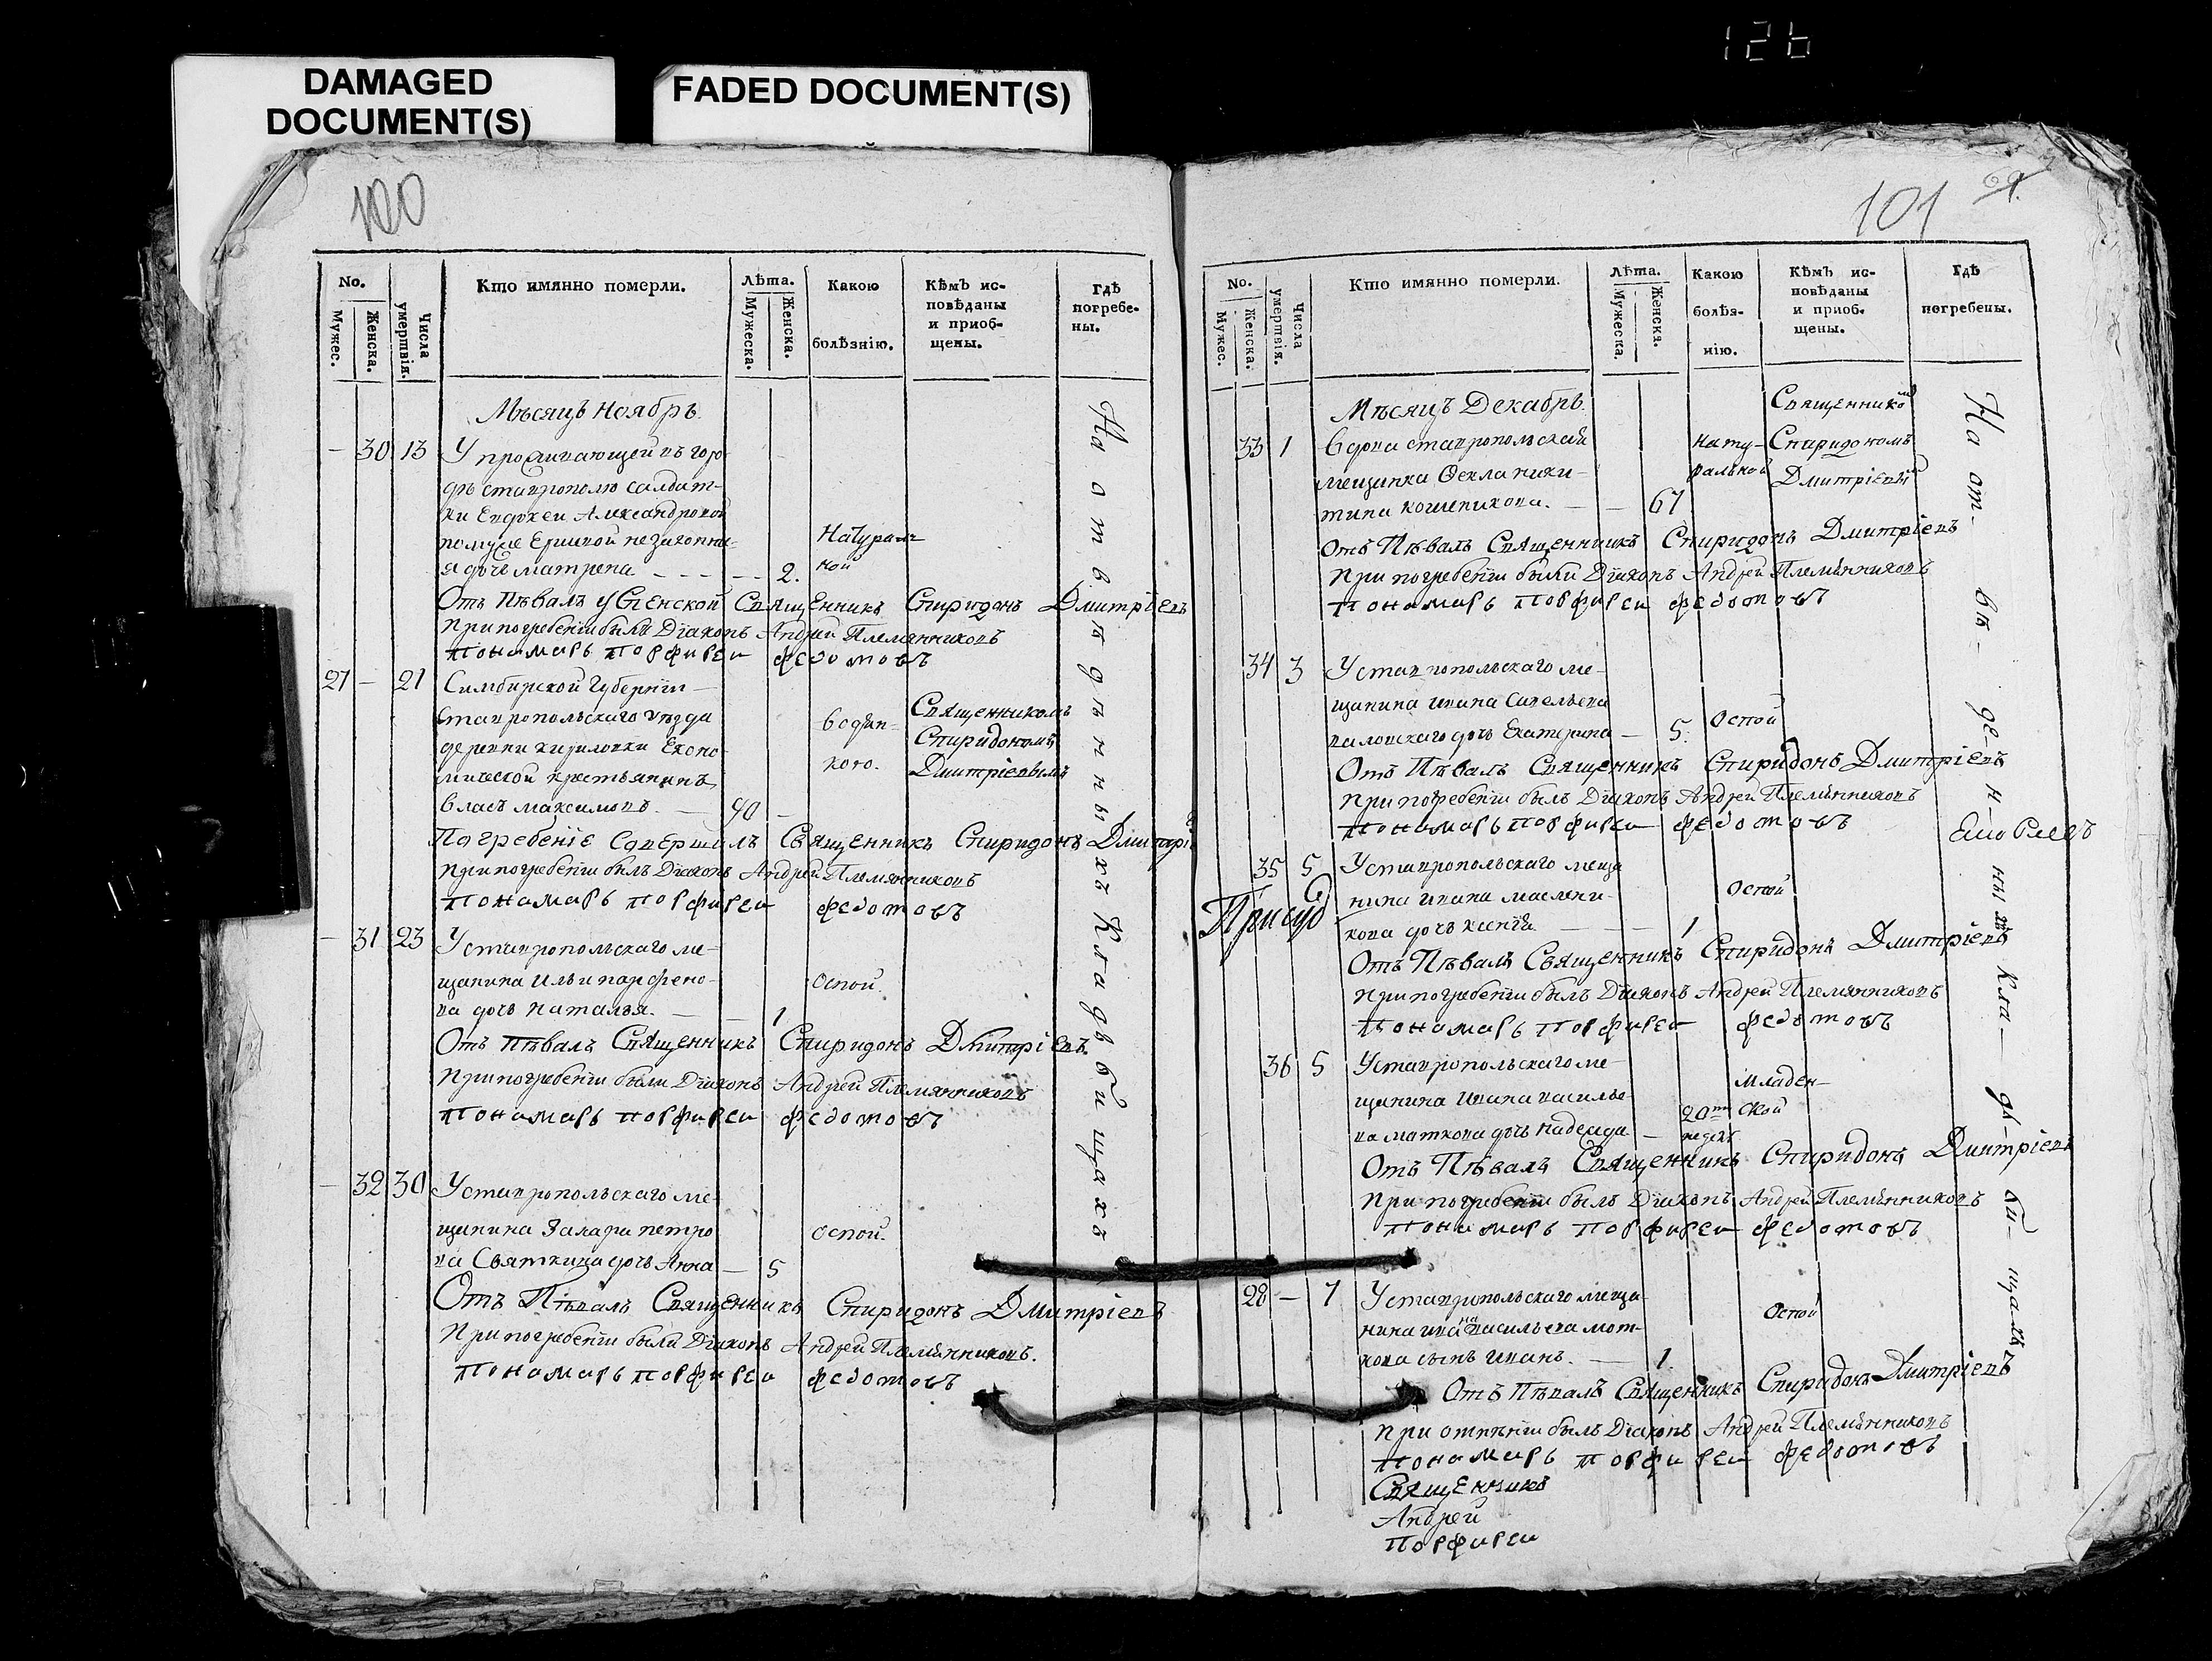 126
DAMAGED
DOCUMENT(S)
FADED DOCUMENT(S)
100
No.
Мужес.
Женска.
Числа
умертвія.
Кто имянно померли.
Лѣта.
Мужеска.
Женска.
Какою
болѣзнію.
Кѣмъ ис-
повѣданы
и приоб-
щены.
Гдѣ
погребе-
ны.
Мѣсяцъ Ноябръ.
– 30 13 У проживающей въ горо-
дѣ ставрополѣ салдат-
ки Евдокеи Александровой
незаконна-
я дочь матрена – – – – 2. Натураль-
ной
Отъ Пѣвалъ Успенской Священникъ Спиридонъ Дмитріевъ
При погребеніи были Діаконъ Андрей Племянниковъ
Пономарь Порфирей Федотовъ
27 – 21 Симбирской Губерніи
Ставропольскаго уѣзда
деревни кириловки Еконо-
мической крестьянинъ
власъ максимовъ. – 90 –
Священникомъ
Спиридономъ
Дмитріевымъ
Погребеніе Совершилъ Священникъ Спиридонъ Дмитріевъ
При погребеніи былъ Діаконъ Андрей Племянниковъ
Пономарь Порфирей Федотовъ
– 31 23 У ставропольскаго ме-
щанина Ильи парфено-
ва дочь наталья. – – 1 Оспой.
Отъ Пѣвалъ Священникъ Спиридонъ Дмитріевъ.
При погребеніи были Діаконъ Андрей Племянниковъ
Пономарь Порфирей Федотовъ
– 32 30 У ставропольскаго ме-
щанина Захара петро-
ва Святкина дочь Анна – 5 оспой.
Отъ Пѣвалъ Священникъ Спиридонъ Дмитріевъ
При погребеніи были Діаконъ Андрей Племянниковъ.
Пономарь Порфирей Федотовъ
На отведенныхъ Кладбищахъ
101
69.
No.
Мужес.
Женска.
Числа
умертвія.
Кто имянно померли.
Лѣта.
Мужеска.
Женска.
Какою
болѣз-
нію.
Кѣмъ ис-
повѣданы
и приоб-
щены.
Гдѣ
погребены.
Мѣсяцъ Декабрь.
33 1 вдова ставропольская
мещанка Фекла ники-
тина – – 67
нату-
ральной
Священником
Спиридономъ
Дмитріевы
Отъ Пѣвалъ Священникъ Спиридонъ Дмитріевъ
При погребеніи были Діаконъ Андрей Племянниковъ
Пономарь Порфирей Федотовъ
34 3 У ставропольскаго ме-
щанина ивана Савельева
дочь Екатерина – 5. Оспой
Отъ Пѣвалъ Священникъ Спиридонъ Дмитріевъ
При погребеніи былъ Діаконъ Андрей Племянниковъ
Пономарь Порфирей Федотовъ
35 5 У ставропольскаго меща-
нина ивана маслени-
кова дочь ксенія – – 1 Оспой
Отъ Пѣвалъ Священникъ Спиридонъ Дмитріевъ
При погребеніи былъ Діаконъ Андрей Племянниковъ
Пономарь Порфирей Федотовъ
36 5 У ставропольскаго ме-
щанина ивана василье-
ва маткова дочь надежда – 20ти недель
младен-
ской
Отъ Пѣвалъ Священникъ Спиридонъ Дмитріевъ
При погребеніи былъ Діаконъ Андрей Племянниковъ
Пономарь Порфирей Федотовъ
28 – 7 У ставропольскаго меща-
нина ивана васильева мот-
кова сынъ иванъ. – 1. Оспой
Отъ Пѣвалъ Священникъ Спиридонъ Дмитріевъ
При отпѣніи былъ Діаконъ Андрей Племянниковъ
Пономарь Порфирей Федотовъ
Священникъ
Андрей
Порфирей
На от- ве- де- н- ныхъ Кла- дь- би- щахъ